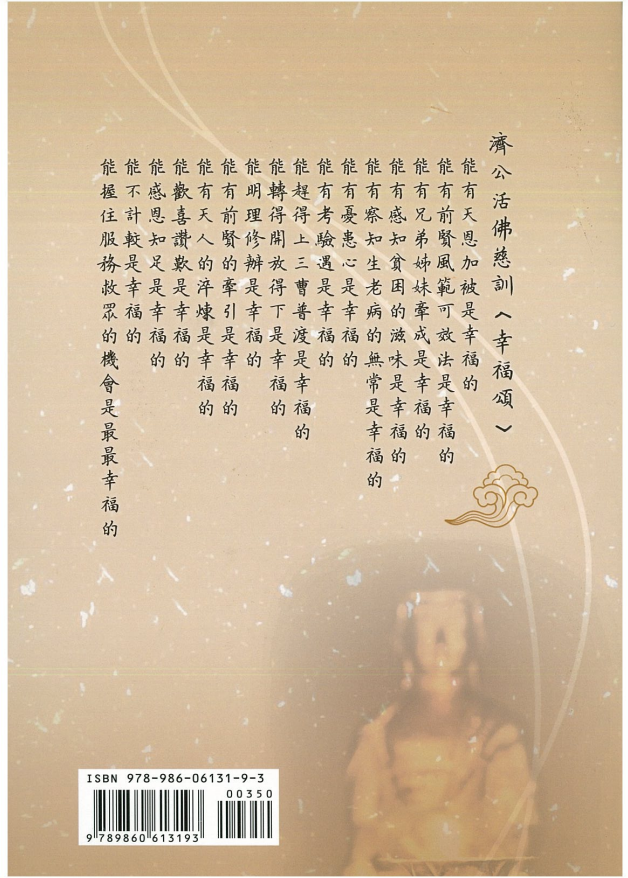 濟公活佛慈訓〈幸福頌〉
能有天恩加被是幸福的
能有前賢風範可效法是幸福的
能有兄弟姊妹牽成是幸福的
能有感知貧困的滋味是幸福的
能有察知生老病的無常是幸福的
能有憂患心是幸福的
能有考驗遇是幸福的
能趕得上三曹普渡是幸福的
能轉得開放得下是幸福的
能明理修辦是幸福的
能有前賢的牽引是幸福的
能有天人的淬煉是幸福的
能歡喜讚歎是幸福的
能感恩知足是幸福的
能不計較是幸福的
能握住服務救眾的機會是最最幸福的
ISBN 978-986-06131-9-3
00350
9 789860 613193